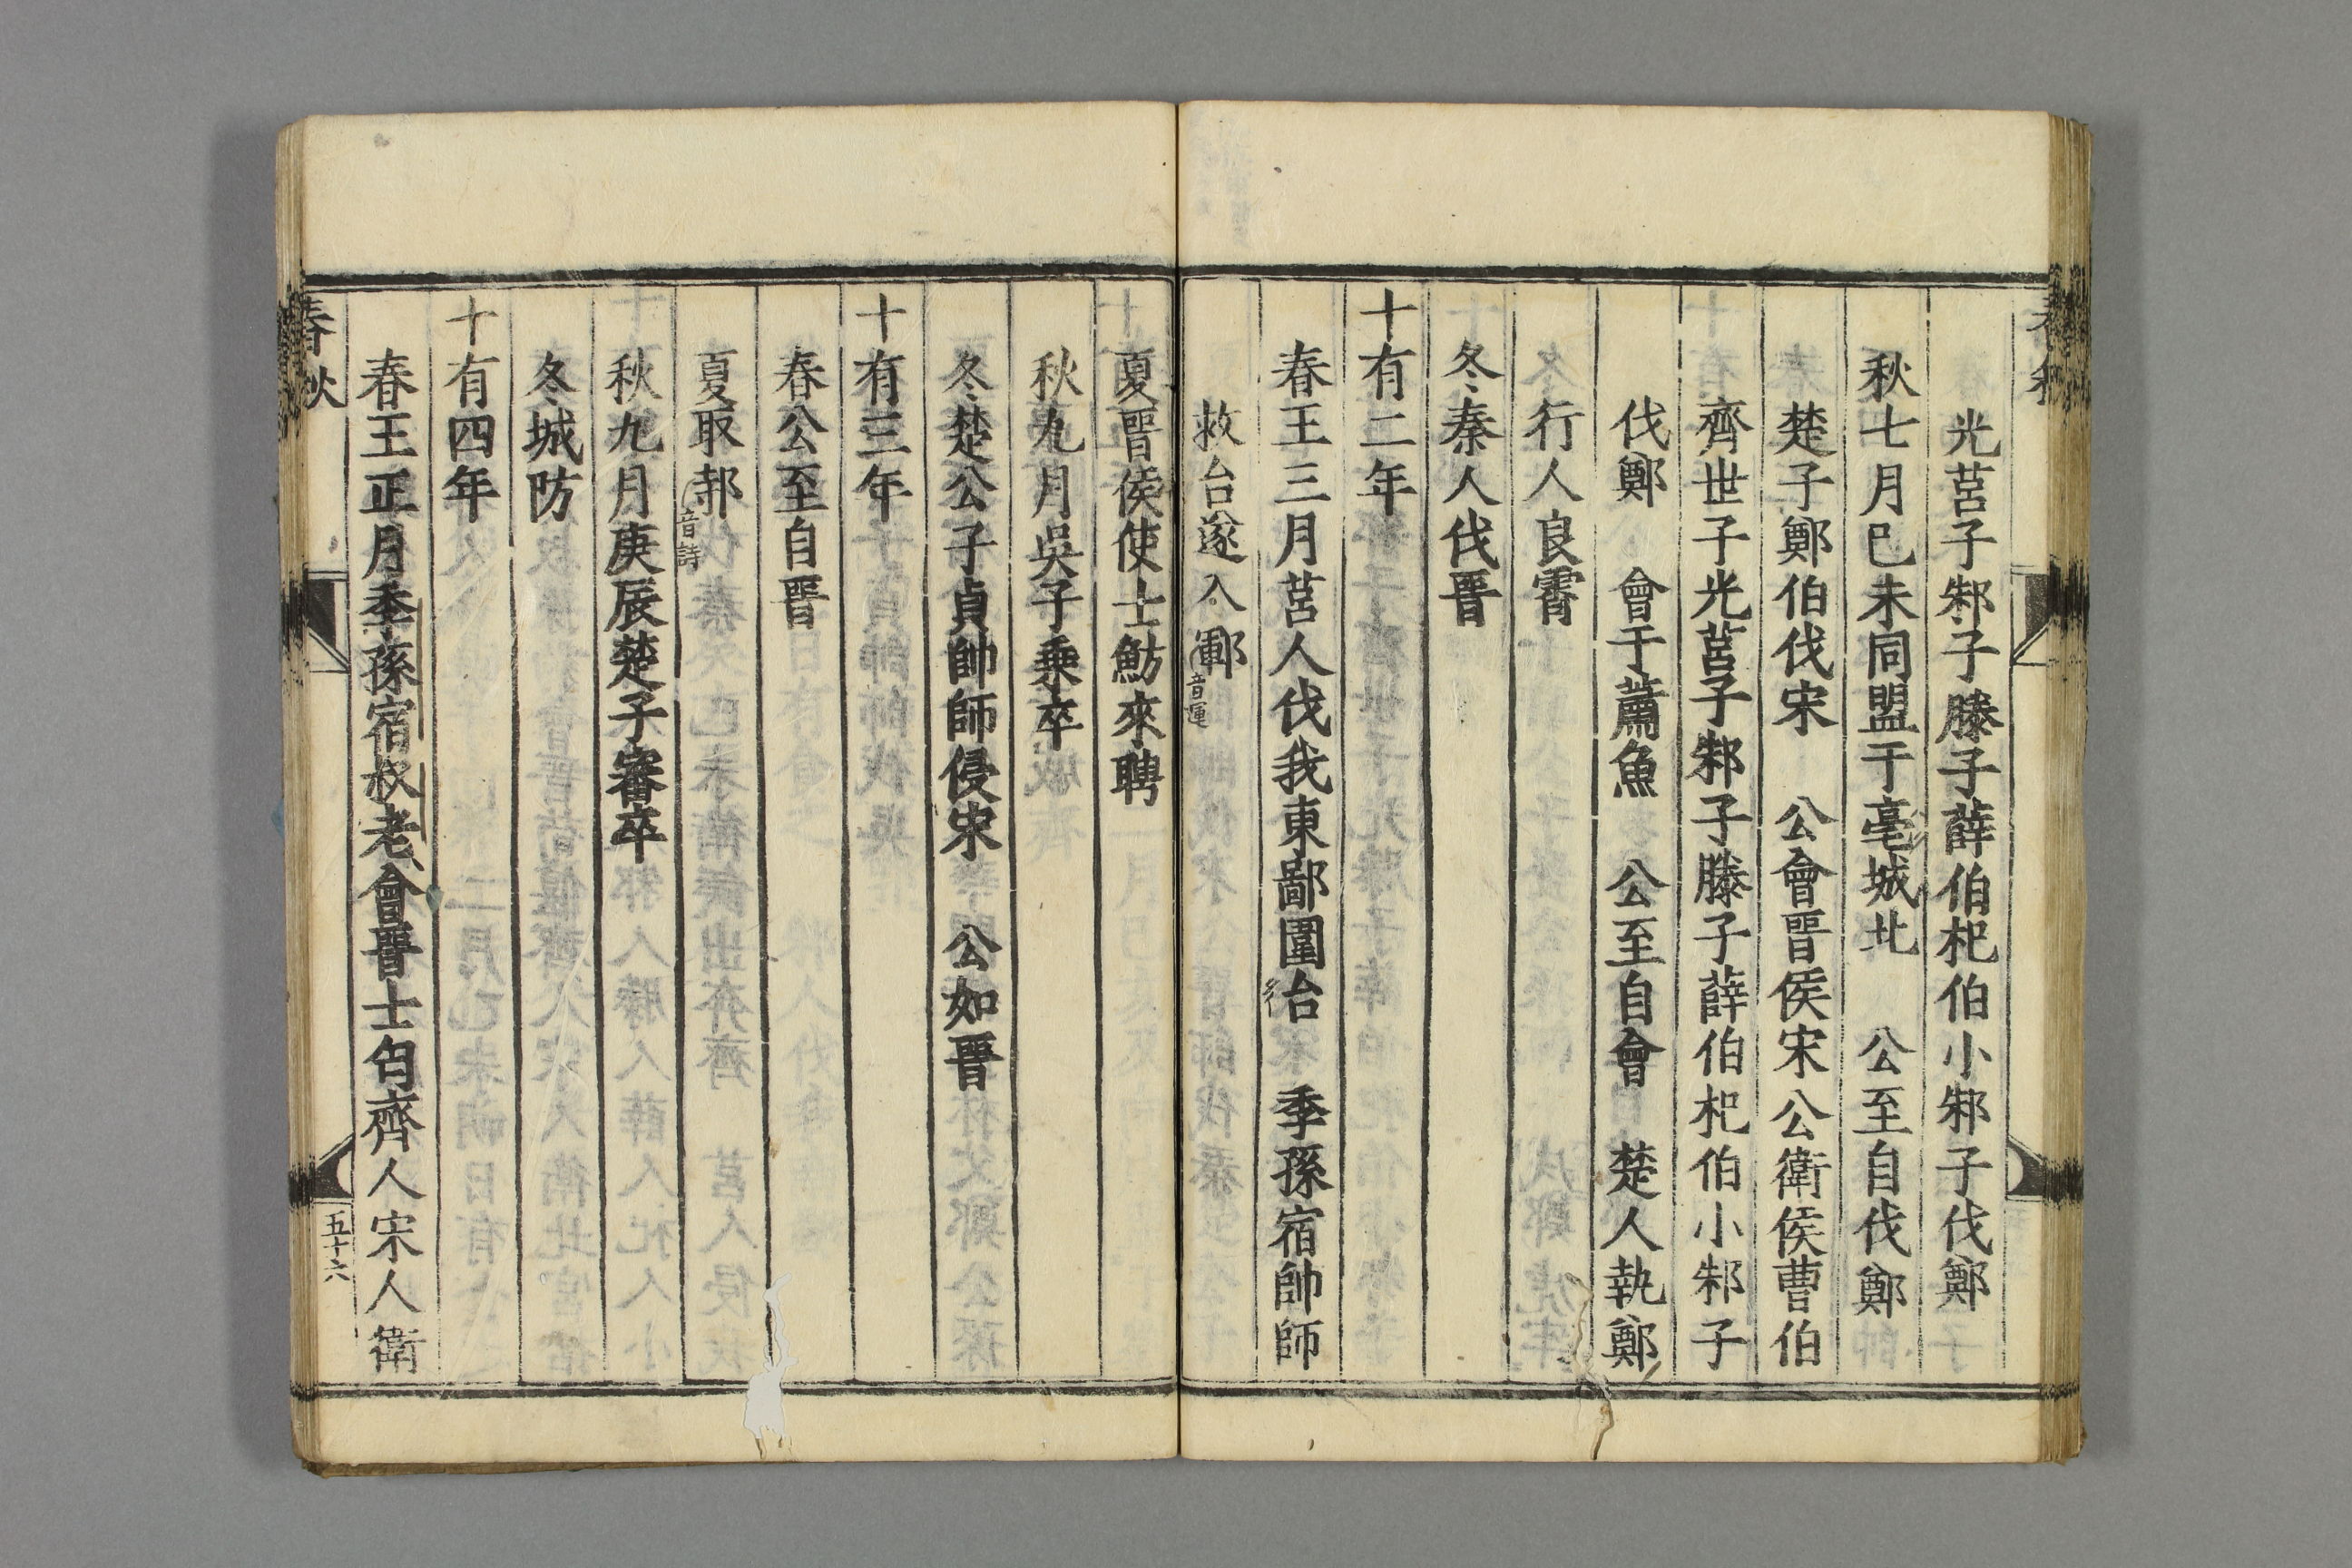 光莒子邾子滕子薛伯杞伯小邾子伐鄭
秋七月己未同盟于亳城北　公至自伐鄭
楚子鄭伯伐宋　公會晉侯宋公衛侯曹伯
齊世子光莒子邾子滕子薛伯杞伯小邾子
伐鄭　會于蕭魚　公至自會　楚人執鄭
行人良霄
冬秦人伐晉
十有二年
春王三月莒人伐我東鄙圍台　季孫宿帥師
救台遂入鄆
音運
夏晉侯使士魴來聘
秋九月吳子乗卒
冬楚公子貞帥師侵宋　公如晉
十有三年
春公至自晉
夏取邿
音詩
秋九月庚辰楚子審卒
冬城防
十有四年
春王正月季孫宿叔老會晉士匄齊人宋人衛
春秋
五十六